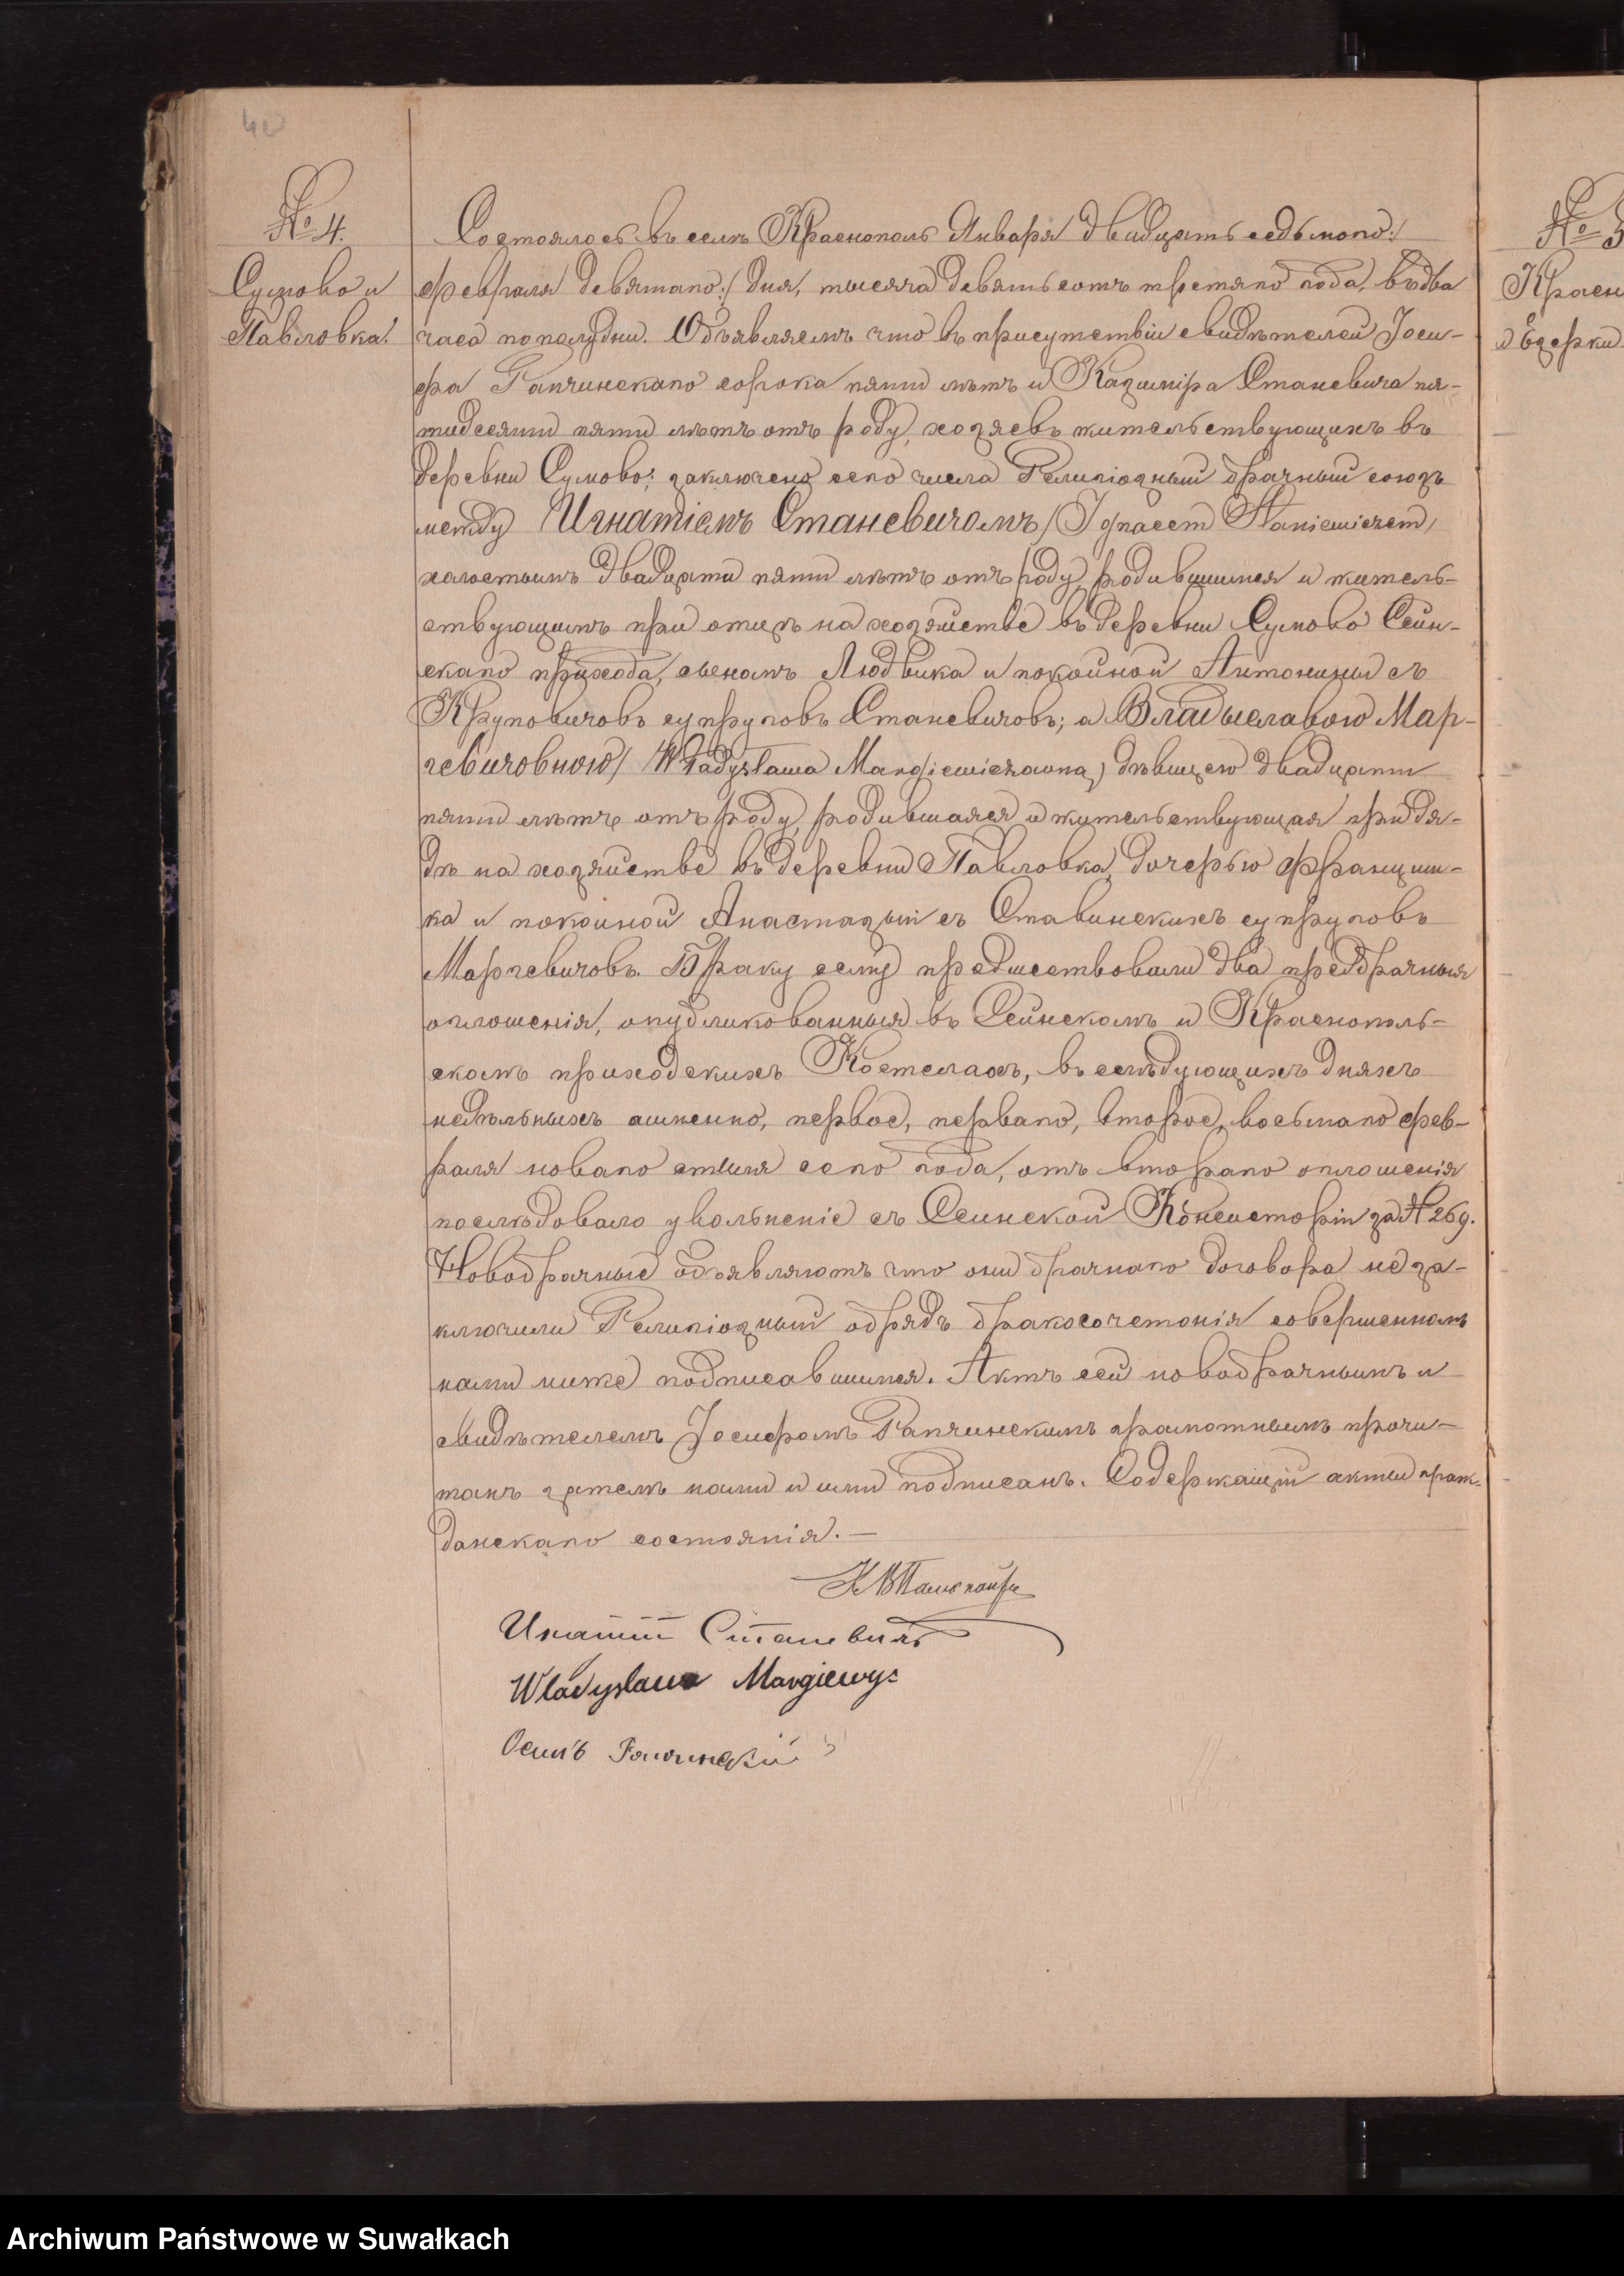 40
№ 4.
Сумово и
Павловка.
Состоялось въ селѣ Краснополь Января двадцать седьмаго /
февраля девятаго / дня, тысяча девятьсотъ третяго года, въ два
часа пополудни. Объявляемъ что въ присутствіи свидѣтелей Іоси-
фа Рапчинскаго сорока пяти лѣтъ и Казиміра Станевича пя-
тидесяти пяти лѣтъ отъ роду, хозяевъ жительствующихъ въ
деревни Сумово; заключено сего числа Религіозный брачный союзъ
между Игнатіемъ Станевичомъ / Ignacem Staniewiczem /
холостымъ двадцати пяти лѣтъ отъ роду, родившимся и житель-
ствующимъ при отцѣ на хозяйстве въ деревни Сумово Сейн-
скаго прихода, сыномъ Людвика и покойной Антонины съ
Круповичовъ супруговъ Станевичовъ; а Владыславою Мар-
гевичовною / Władysława Margiewiczowna / дѣвицею двадцати
пяти лѣтъ отъ роду, родившаяся и жительствующая при дя-
дѣ на хозяйстве въ деревни Павловка, дочерью Францишка-
ка и покойной Анастазыи съ Ставинскихъ супруговъ
Маргевичовъ. Браку сему предшествовали два предбрачныя
оглошенія, опубликованныя въ Сейнскомъ и Краснополь-
скомъ приходскихъ Костелахъ, въ слѣдующихъ дняхъ
недѣльныхъ аименно, первое, перваго, второе, восьмаго фев-
раля новаго стиля сего года, отъ втораго оглошенія
послѣдовало увольненіе съ Сейнской Консисторіи за № 269.
Новобрачные объявляютъ что они брачнаго договора не за-
ключили Религіозный обрядъ бракосочетанія совершенномъ
нами ниже подписавшимся. Актъ сей новобрачнымъ и
свидѣтелемъ Іосифомъ Рапчинскимъ грамотнымъ прочи-
танъ затемъ нами и ими подписанъ. Содержащій акты граж-
данскаго состоянія. —
Игнатій Станевичъ
Władysława Margiewyc
Осипъ Рапчинскій
№ 5
Красн
и Езерки
Archiwum Państwowe w Suwałkach